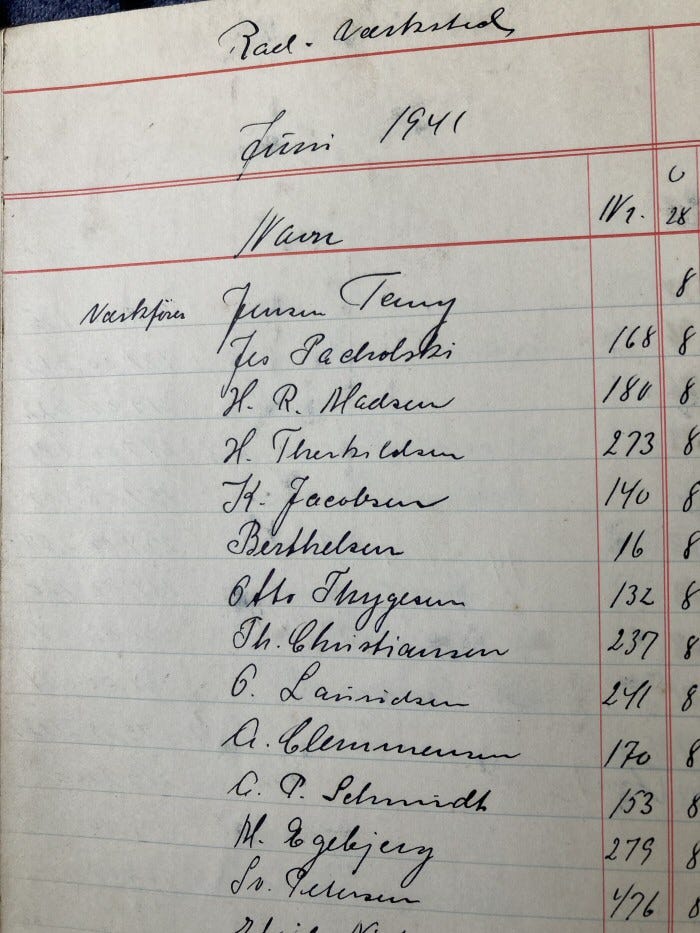 Rad. Værksted
Juni 1941
Navn Nr. 28
Værkfører Jensen 8
Jes Pacholski 168 8
H. R. Madsen 180 8
H. Therkildsen 273 8
K. Jacobsen 140 8
Berthelsen 16 8
Otto Thygesen 132 8
Th. Christiansen 237 8
O. Lauridsen 241 8
A. Clemmensen 170 8
A. P. Schmidt 153 8
M. Egebjerg 279 8
Sv. Petersen 476 8